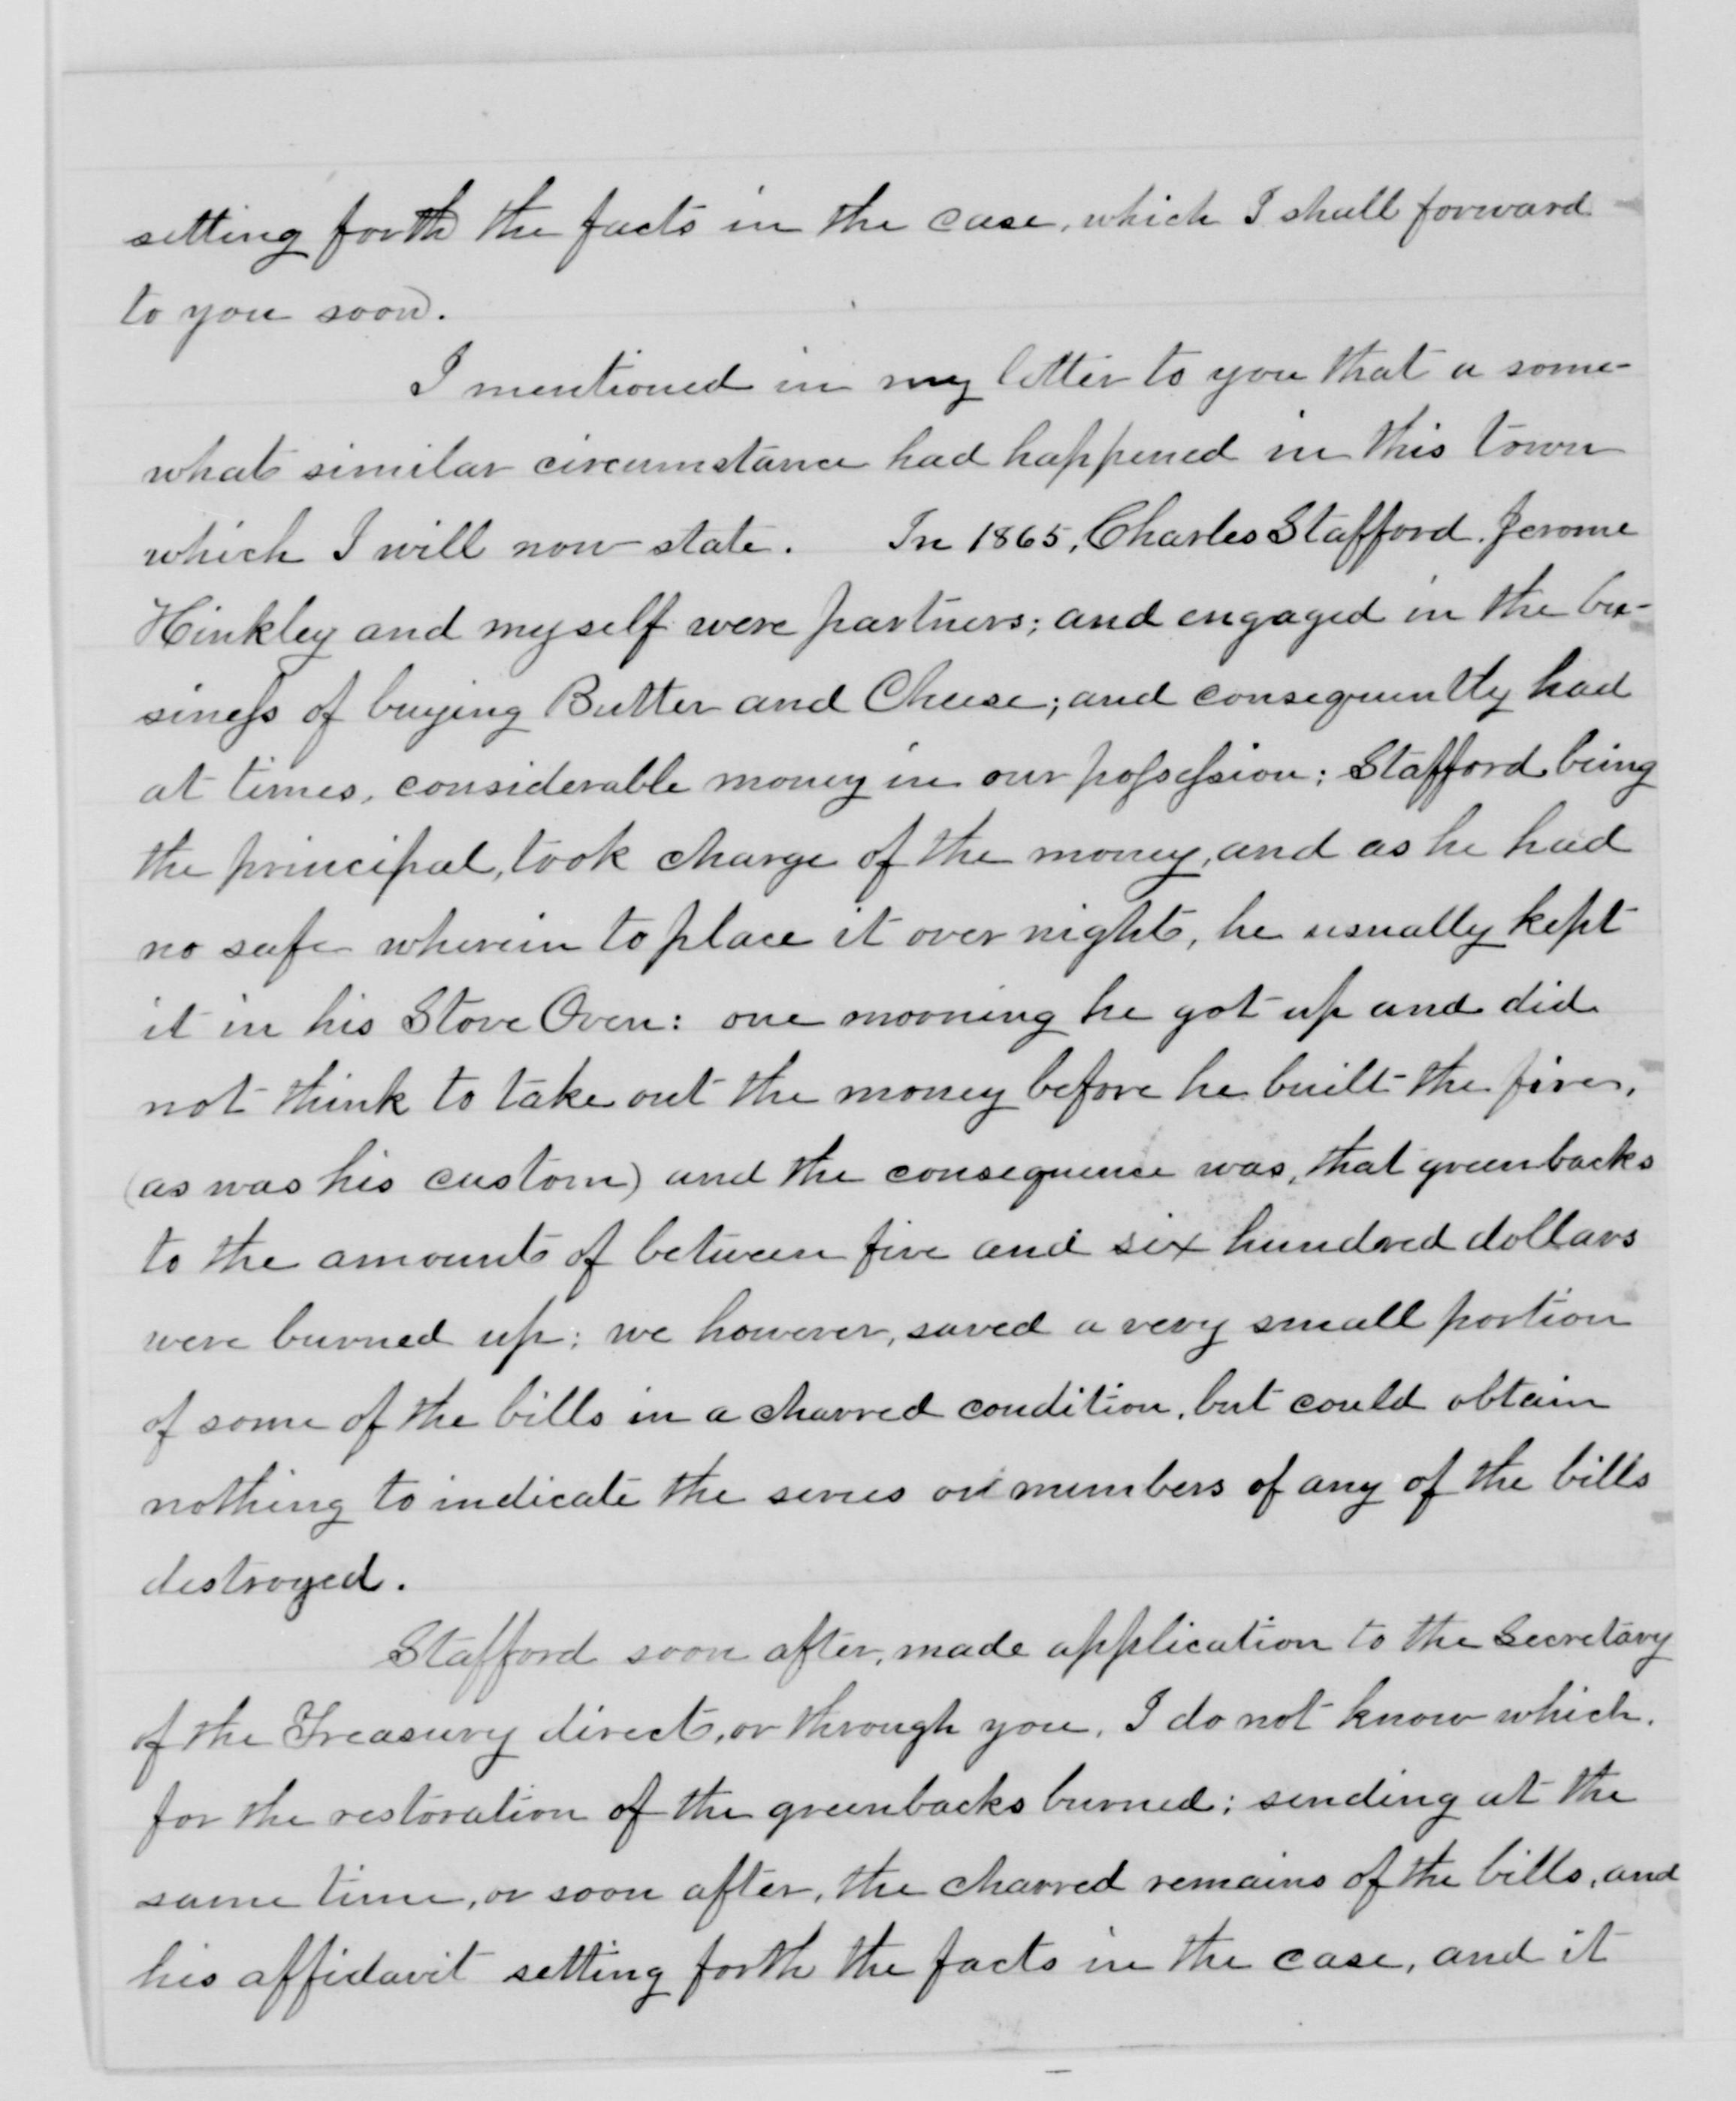 setting forth the facts in the case, which I shall forward
to you soon.
I mentioned in my letter to you that a some-
what similar circumstance had happened in this town
which I will now state. In 1865, Charles Stafford, Jerome
Hinkley and myself were partners; and engaged in the bu-
siness of buying Butter and Cheese; and consequently had
at times, considerable money in our possession: Stafford being
the principal, took charge of the money, and as he had
no safe wherein to place it over night, he usually kept
it in his Stove Oven: one morning he got up and did
not think to take out the money before he built the fire,
(as was his custom) and the consequence was, that greenbacks
to the amount of between five and six hundred dollars
were burned up: we however, saved a very small portion
of some of the bills in a charred condition, but could obtain
nothing to indicate the series or numbers of any of the bills
destroyed.
Stafford soon after, made application to the Secretary
of the Treasury direct, or through you, I do not know which,
for the restoration of the greenbacks burned; sending at the
same time, or soon after, the charred remains of the bills, and
his affidavit setting forth the facts in the case, and it